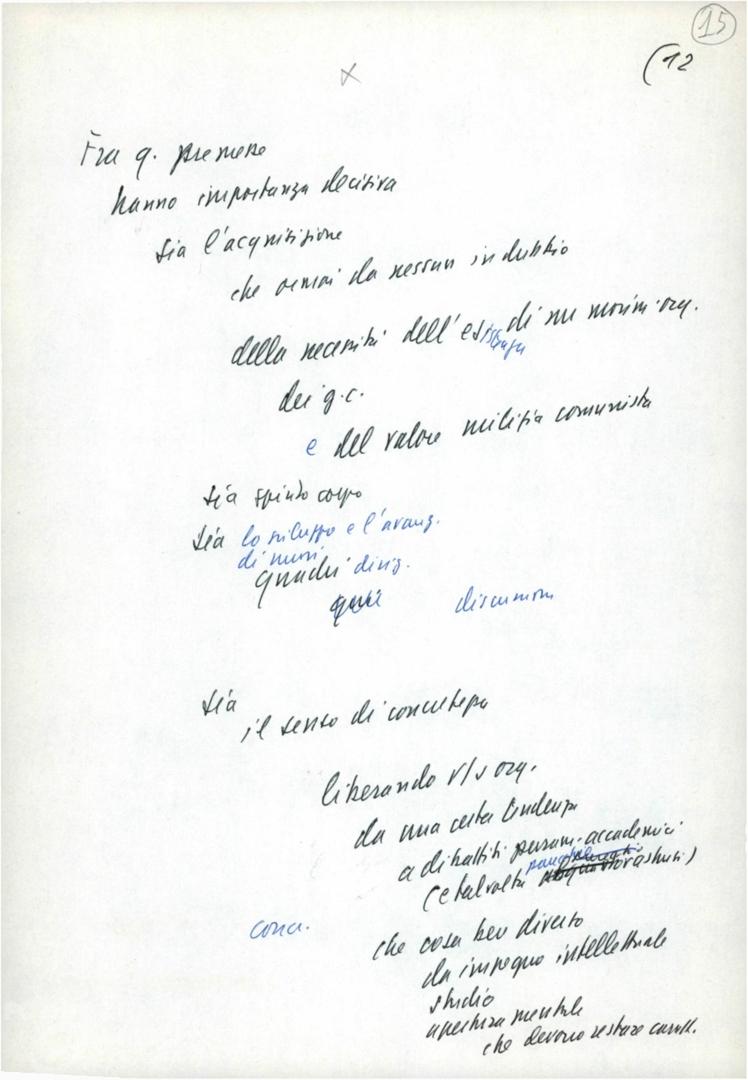 15
(12
x
Fra q. premesse
hanno importanza decisiva
sia l'acquisizione
che ormai da nessun in dubbio
della necessità dell'esistenza di un movim. org.
dei g.c.
e del valore milizia comunista
sia spirito corpo
sia lo sviluppo e l'avanz.
di nuovi
quadri dirig.
quii discussioni
sia
il senso di concretezza
liberando n/s org.
da una certa tendenza
a dibattiti puram. accademici
(e talvolta astrusi)
conc. che cosa ben diversa
da impegno intellettuale
studio
apertura mentale
che devono restare caratt.